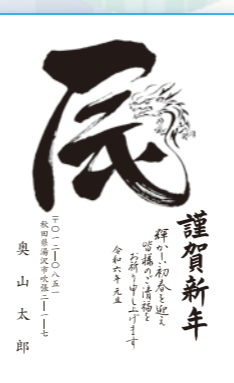 辰
謹賀新年
輝かしい初春を迎え
皆様のご清福を
お祈り申し上げます
令和六年元旦
〒〇一二ー〇八五一
秋田県湯沢市吹張二ー一ー七
奥山太郎